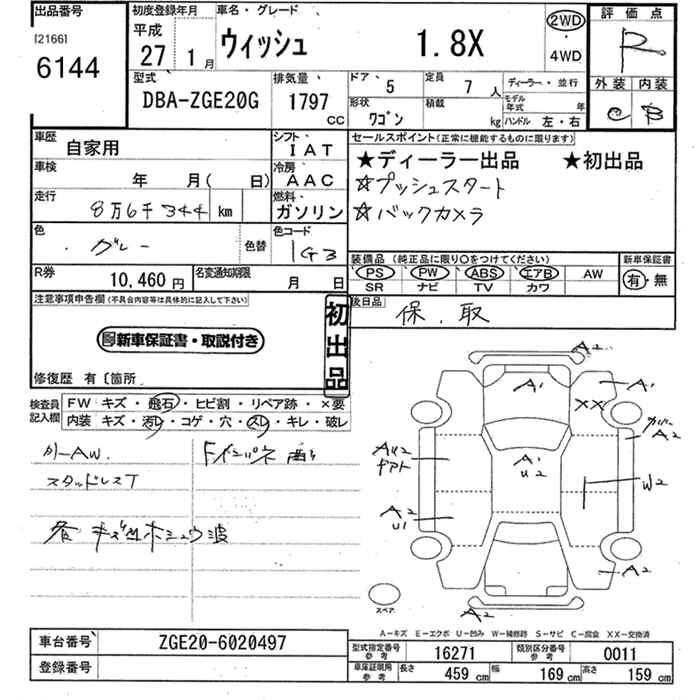 出品番号
[2166]
6144
初度登録年月
平成
27 1月
車名・グレード
ウィッシュ 1.8X
2WD
・
4WD
評価点
R
外装 内装
C B
型式
DBA-ZGE20G
排気量
1797
CC
ドア
5
定員
7人
ディーラー・並行
形状
ワゴン
積載
kg
モデル年式
年
ハンドル 左・右
車歴
自家用
シフト
IAT
セールスポイント(正常に機能するものに限ります)
★ディーラー出品 ★初出品
☆プッシュスタート
☆バックカメラ
車検
年 月( 日)
冷房
AAC
走行
8万6千344 km
燃料
ガソリン
色
グレー
色替
色コード
1G3
装備品(純正品に限り○をつけてください)
PS PW ABS エアB AW
SR ナビ TV カワ
新車保証書
有・無
R券
10,460円
名変通知期限
月 日
後日品
保.取
注意事項申告欄(不具合内容等は具体的に記入して下さい)
新車保証書・取説付き
初出品
修復歴 有〔箇所
検査員記入欄
FW キズ・飛石・ヒビ割・リペア跡・×要
内装 キズ・汚レ・コゲ・穴・スレ・キレ・破レ
カーAW.
スタッドレスT
A2
A1
A1
XX
カバー
A2
AU2
A1
U2
W2
A2
U1
A2
スペア
A2
A−キズ E−エクボ U−凹み W−補修跡 S−サビ C−腐食 XX−交換済
車台番号
ZGE20-6020497
登録番号
型式指定番号 参考
16271
類別区分番号 参考
0011
車庫証明用 参考
長さ 459 cm
幅 169 cm
高さ 159 cm